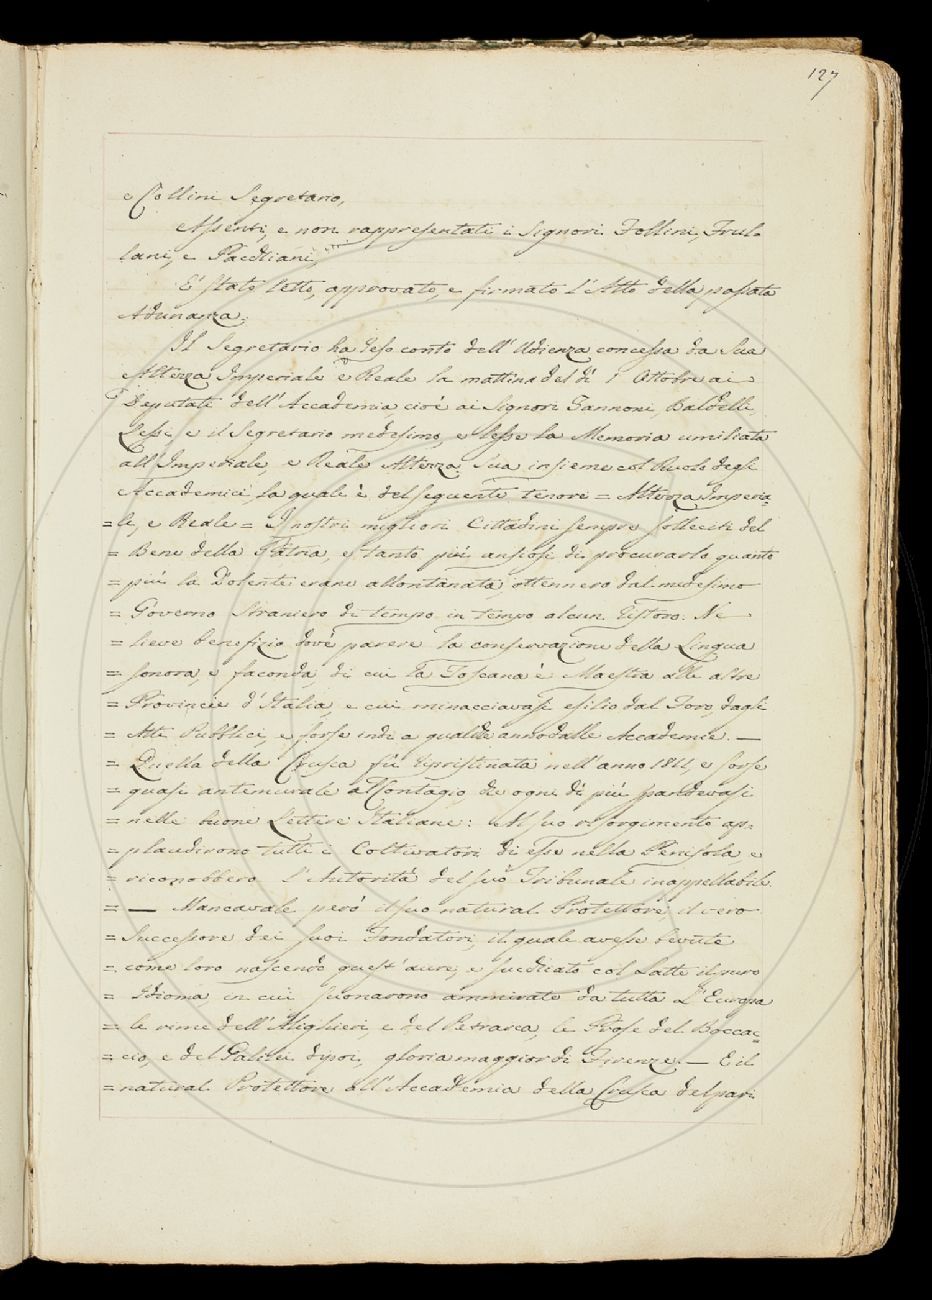 127
e Collini Segretario,
Assenti, e non rappresentati i Signori Follini, Frul-
lani, e Pacchiani,
E' stato letto, approvato, e firmato l'Atto della passata
Adunanza.
Il Segretario ha reso conto dell'Udienza concessa da Sua
Altezza Imperiale e Reale la mattina del dì 1 Ottobre ai
Deputati dell'Accademia, cioè ai Signori Zannoni, Baldelli,
Lessi, e il Segretario medesimo, e lesse la Memoria umiliata
all'Imperiale, e Reale Altezza Sua insieme col Ruolo degli
Accademici la quale è del seguente tenore = Altezza Imperia-
= le, e Reale = I nostri migliori Cittadini sempre solleciti del
= Bene della Patria, e tanto più ansiosi di procurarlo quanto
= più la Dolente erane allontanata, ottennero dal medesimo
= Governo Straniero di tempo in tempo alcun ristoro. Ne
= lieve benefizio dovè parere la conservazione della Lingua
= sonora, e faconda, di cui la Toscana è Maestra alle altre
= Provincie d'Italia, e cui minacciavasi esilio dal Foro, dagli
= Atti Pubblici, e forse indi a qualche anno dalle Accademie. —
= Quella della Crusca fù ripristinata nell'anno 1811, e sorse
= quasi antemurale al Contagio, che ogni dì più spandevasi
= nelle buone Lettere Italiane: Al suo risorgimento ap-
= plaudirono tutti i Coltivatori di esse nella Penisola, e
= riconobbero l'Autorità del suo Tribunale inappellabile.
= — Mancavale però il suo natural Protettore, il vero
= Successore dei suoi Fondatori, il quale avesse bevute
= come loro nascendo quest'aure, e succhiato col Latte il puro
= Idioma, in cui suonarono ammirate da tutta L'Europa
= le rime dell'Alighieri, e del Petrarca, le Prose del Boccac-
= cio, e del Galilei dipoi, gloria maggior di Firenze. — E il
= natural Protettore all'Accademia della Crusca del pari